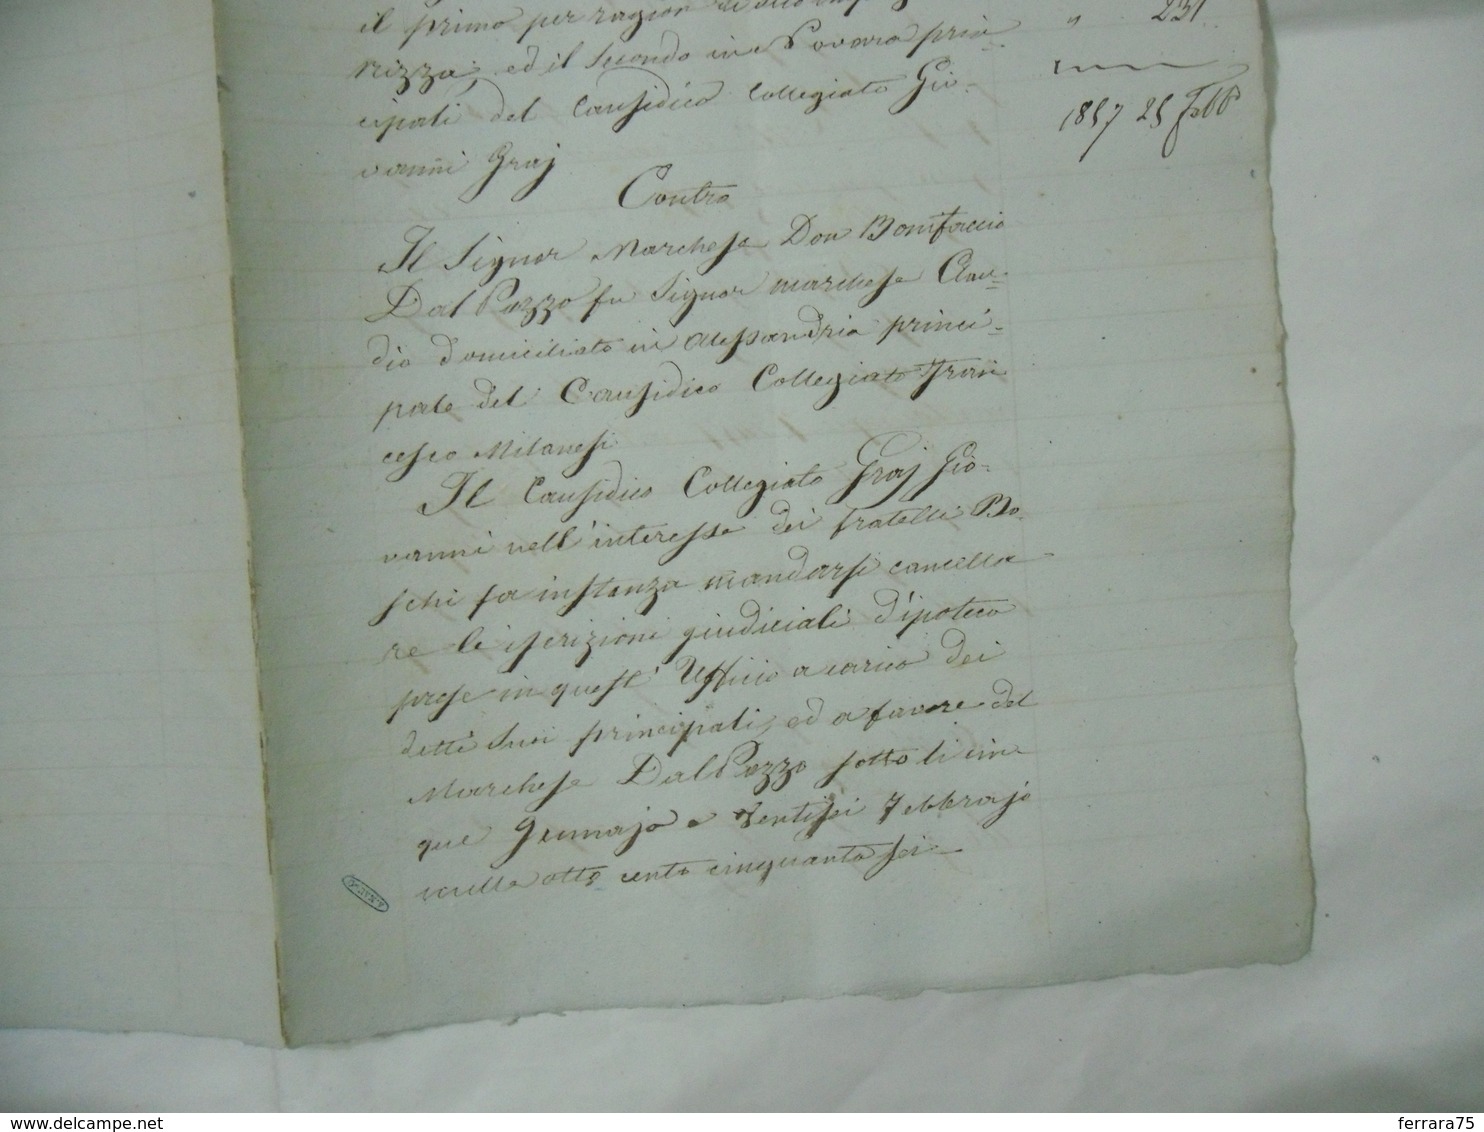 il primo per ragion di
Nizza, ed il secondo in Novara prin
cipali del Causidico Collegiato Gio-
vanni Graj
" 231
1857 25 Febb
Contro
Il Signor Marchese Don Bonifaccio
Dal Pozzo fu Signor marchese Clau-
dio domiciliato in Alessandria princi-
pale del Causidico Collegiato Fran
cesco Milanesi
Il Causidico Collegiato Graj Gio-
vanni nell'interesse dei fratelli Bo-
schi fa instanza mandarsi cancella
re le iscrizioni giudiciali d'ipoteca
prese in quest'Ufficio a carico dei
detti suoi principali, ed a favore del
Marchese Dal Pozzo sotto li cin
que Gennajo e ventisei Febbrajo
mille otto cento cinquanta sei
ferrara75